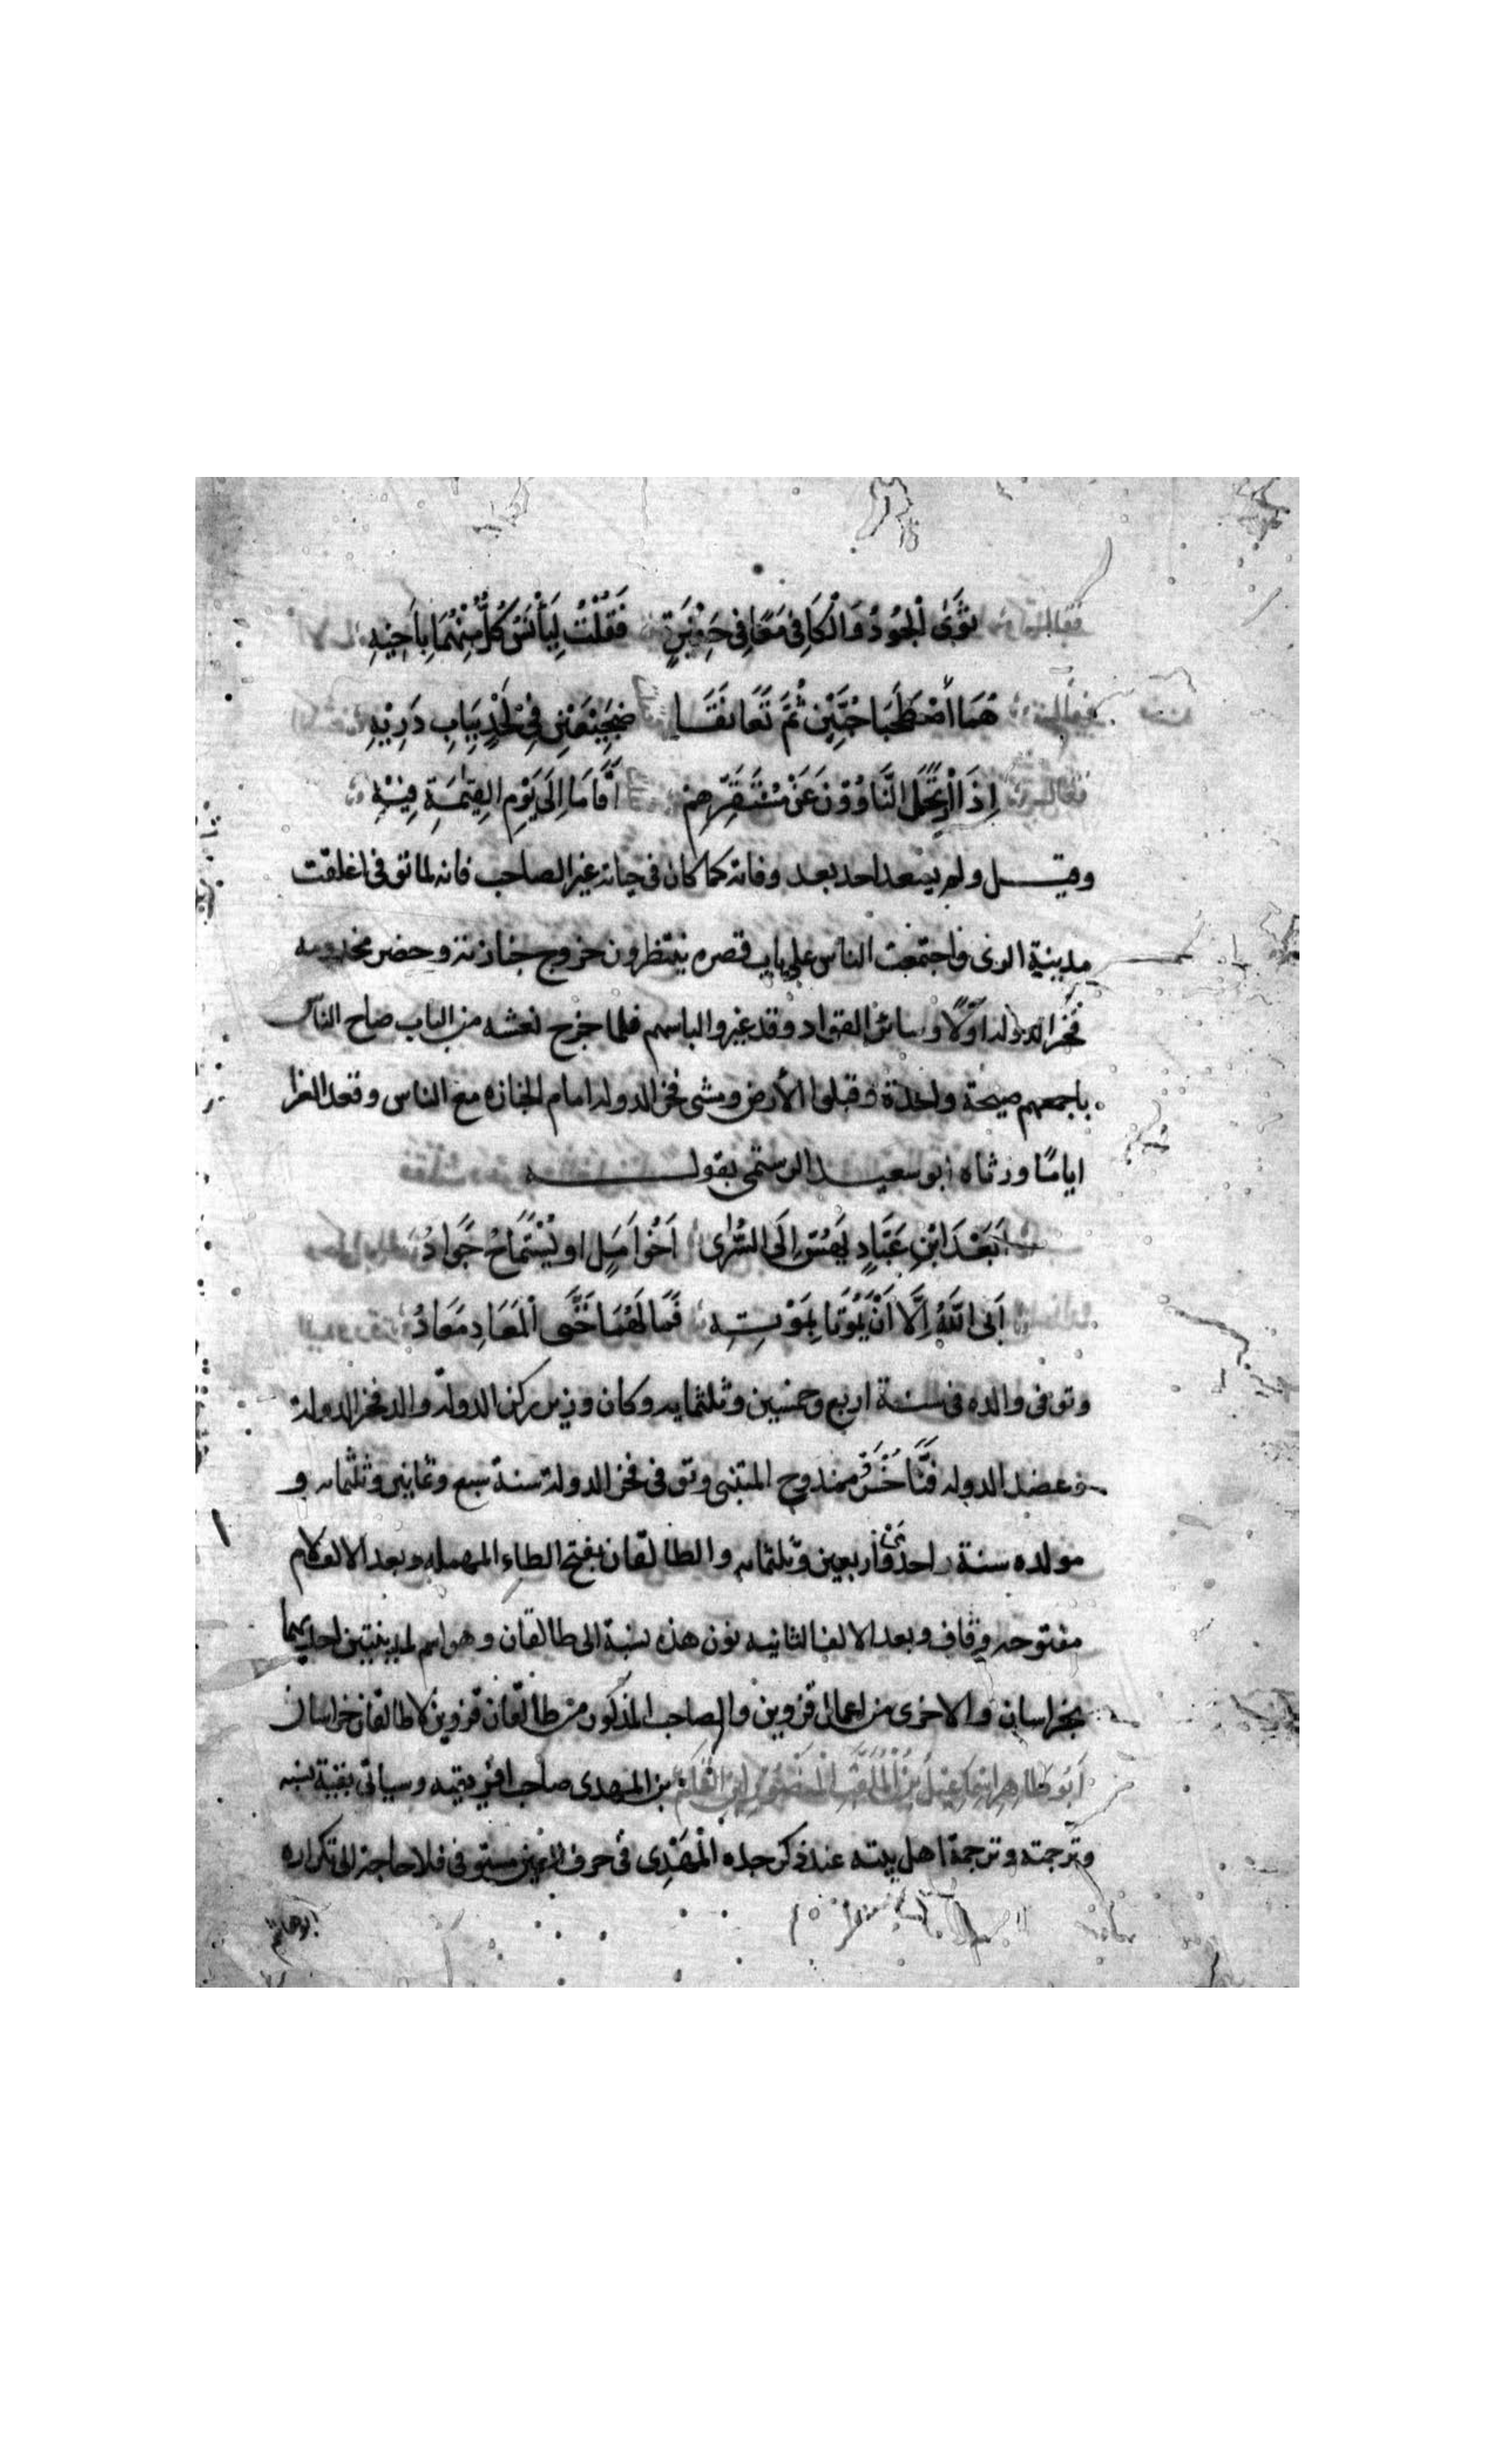 ثَوَى الْجُودُ وَالْكَافِي مَعًا فِي حُفَيْرَةٍ فَقُلْتُ لِيَأْنَسْ كُلٌّ مِنْهُمَا بِأَخِيهِ
هُمَا اصْطَحَبَا حَيَّيْنِ ثُمَّ تَعَانَقَا ضَجِيعَيْنِ فِي لَحْدٍ بِبَابِ دَرِيْهِ
إِذَا ارْتَحَلَ الثَّاوُوْنَ عَنْ مُسْتَقَرِّهِمْ أَقَامَا إِلَى يَوْمِ القِيٰمَةِ فِيْهِ
وقيل ولم يسعد احد بعد وفاته كما كان في حياته غير الصاحب فانه لما توفي اغلقت
مدينة الري واجتمعت الناس على باب قصره ينتظرون خروج جنازته وحضر مخدومه
فخر الدولة اوّلًا وسائر القواد وقد غيروا لباسهم فلما خرج نعشه من الباب صاح الناس
باجمعهم صيحة واحدة وقبلوا الأرض ومشى فخر الدوله امام الجنازه مع الناس وقعد للعزا
ايامًا ورثاه ابو سعيد الرستمى بقوله
أَبَعْدَ ابْنِ عَبَّادٍ يَهُشّ إِلَى السُّرٰى أَخُو أَمَلٍ او يُسْتَمَاحُ جَوَادُ
أَبَى اللَّهُ إِلَّا أَنْ يَمُوْتَا بِمَوْتِهِ فَمَا لَهُمَا حَتَّى الْمَعَادِ مَعَادُ
وتوفى والده فى سنة اربع وخمسين وثلثمايه وكان وزير ركن الدولة والد فخر الدولة
وعضد الدوله فَنَّاخُسْرُ ممدوح المتنبى وتوفى فخر الدولة سنة سبع وثمانين وثلثمايه و
مولده سنة احدى واربعين وثلثمايه والطالقان بفتح الطاء المهمله وبعد الالف لام
مفتوحه وقاف وبعد الالف الثانيه نون هذه نسبة الى طالقان وهو اسم لمدينتين احديهما
بخراسان والاخرى من اعمال قزوين والصاحب المذكور من طالقان قزوين لا طالقان خراسان
أَبُو طَاهِر إِسْمَاعِيلُ بْنُ الْمُلَقَّب الْمَنْصُوْر ابْنِ الْقَائِم بن المهدى صاحب افريقيه وسياتى بقية نسبه
وترجمته وترجمة اهل بيته عند ذكر جده الْمَهْدِى فى حرف العين مستوفى فلا حاجة الى تكراره